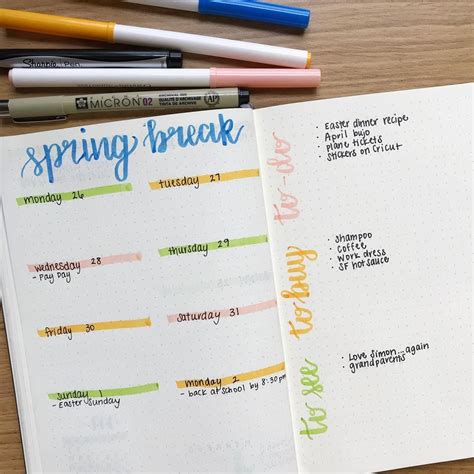 Sharpie Pen
MICRON 02
ARCHIVAL INK
QUALITÉ D'ARCHIVAGE
TINTA DE ARCHIVO
AP
spring break
monday 26
tuesday 27
wednesday 28
- Pay Day
thursday 29
friday 30
saturday 31
sunday 1
- Easter Sunday
monday 2
- back at school by 8:30 pm
to-do
· Easter dinner recipe
· April bujo
· plane tickets
· stickers on Cricut
to buy
· shampoo
· coffee
· work dress
· SF hot sauce
to see
· Love Simon...again
· grandparents